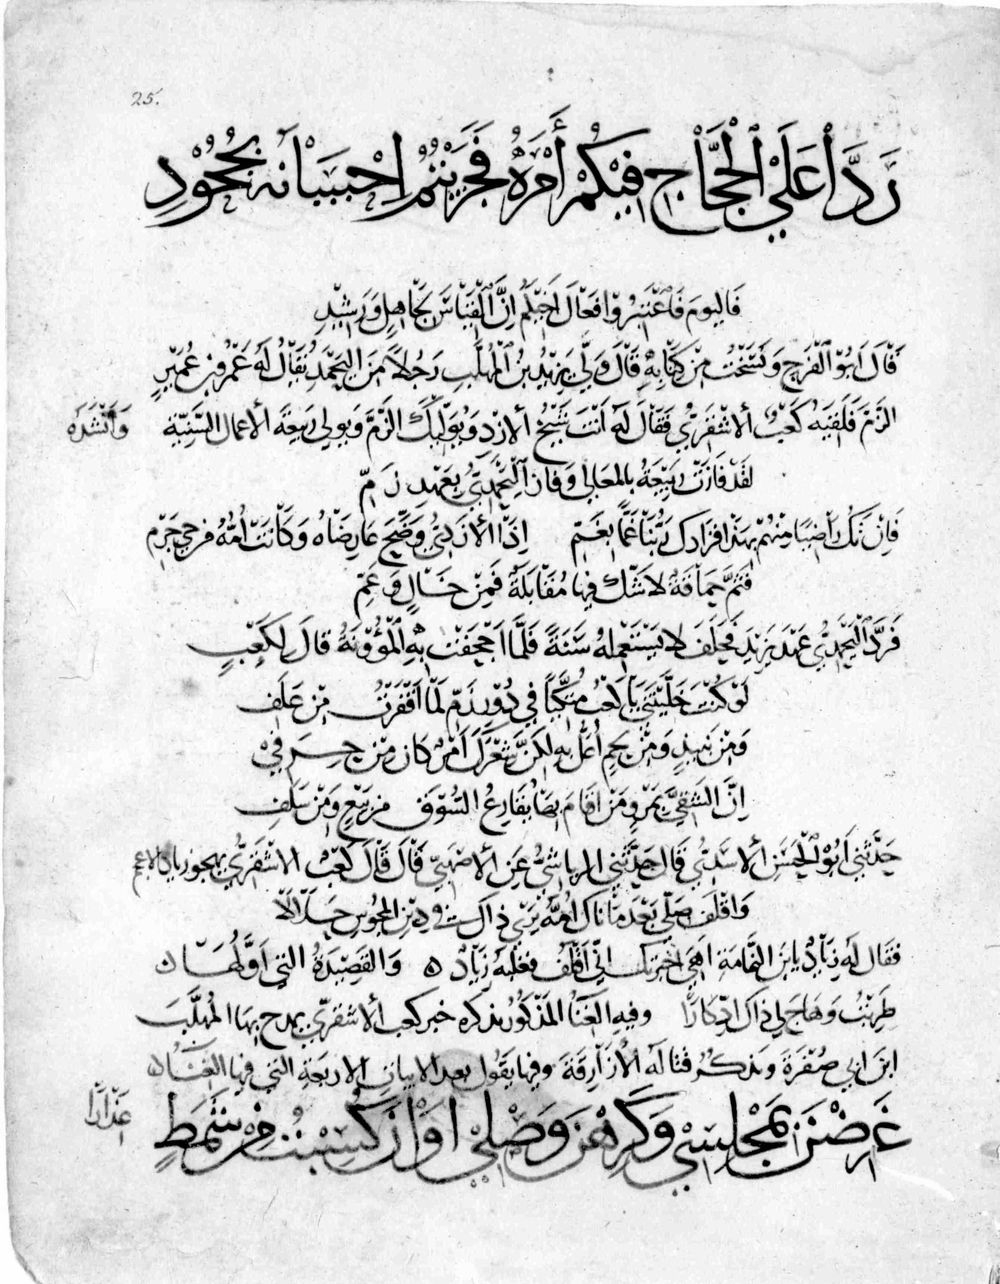 25.
رَدَّا عَلَي الْحَجَّاجِ فِيْكُمْ أَمْرَهُ فَجَزَيْتُمُ احْسَانَهُ بِجُحُوْدِ
فَاليومَ فَاعْتَبِرُوْا فَعَالَ اَخِيْكُمُ اِنَّ الْقِيَاسَ بِجَاهِلٍ وَرَشِيْدِ
قَالَ اَبُوْ الْفَرَجِ وَنَسَخْتُ مِنْ كِتَابِهِ قَالَ وَلَّي يَزِيْدُ بْنُ الْمُهَلَّبِ رَجُلاً مِنَ الْيَحْمَدِ يُقَالُ لَهُ عَمْرُو بْنُ عُمَيْرٍ
الزَمَّ فَلَقِيَهُ كَعْبٌ الاشْقَرِيُّ فَقَالَ لَهُ اَنْتَ شَيْخُ الازْدِ وَيُوَلِّيكَ الزَمَّ وَيُولي رَبِيعَةَ الاعمالَ السَّنِيَّة وَاَنْشَدَهُ
لَقَدْ فَازَتْ رَبِيْعَةُ بالمعَالِي وَفَازَ الْيَحْمَدِيُّ بِعَهْدِ زَمّ
فَاِنْ تَكُ رَاضِيًا مِنْهُمْ بِهَذَا فَزَادَكَ رَبُّنَا غَمًّا بِغَمّ اِذَا الازْدِيُّ وَضَّحَ عَارِضَاهُ وَكَانَتْ اُمُّهُ مِنْ حَيِّ جَرْمِ
فَثَمَّ حَمَاقَةٌ لا شَكَّ فِيهَا مُقَابَلَةٌ فَمِنْ خَالٍ وَعَمّ
فَرَدَّ الْيَحْمَدِيُّ عَهْدَ يَزِيْدَ فَحَلَفَ لا يَسْتَعْمِلهُ سَنَةً فَلَمَّا اَجْحَفَتْ بِهِ الْمَؤُوْنَةُ قَالَ لِكَعْبٍ
لَوْ كُنْتَ خَلَّيْتَنِي يَا كَعْبُ مُتَّكِئًا فِي دُوْرِ زَمّ لَمَا اَقْفَرْتُ مِنْ عَلَفِ
وَمِنْ نَبِيْدٍ وَمِنْ لَحْمٍ اُعَلُّ بِهِ لَكِنَّ شِعْرَكَ اَمْرٌ كَانَ مِنْ حِرَفِي
اِنَّ الشَّقِيَّ بِمَرْوٍ مَنْ اَقَامَ بِهَا يُقَارِعُ السُّوْقَ مِنْ بَيْعٍ وَمِنْ سَلَفِ
حَدَّثَنِي اَبُوْ الْحَسَنِ الاسَدِيُّ قَالَ حَدَّثَنِي الرِيَاشِيُّ عَنِ الاصْمَعِيِّ قَالَ قَالَ كَعْبٌ الاشْقَرِيُّ يَهجُو زيادًا الاعجم
وَاَقْلَف صَلَّي بَعْدَ مَا نَاكَ اُمَّهُ يَرَي ذَاكَ في دِيْنِ المجُوسِ حَلالا
فَقَالَ لَهُ زِيَادٌ يا ابنَ النَّمَّامَةِ اَهِيَ اَخْبَرَتْكَ اَنِّي اَقْلَفُ فَغَلَبَهُ زِيَادٌ ۝ وَالقَصِيْدَةُ التِي اَوَّلُهَا ۝
طَرِبْتُ وَهَاجَ لِي ذَاكَ ادِّكَارَا وَفِيهِ الغِنَاءُ المَذْكُورُ بِذِكْرِهِ خَبَر كَعْبٍ الاشقرِيِّ يمدَحُ بِهَا المُهَلَّبَ
ابْنَ اَبِي صُفْرَةَ وَيَذْكُرُ قِتَالَهُ الازَارِقَةَ وفِيهَا يَقُولُ بعدَ الابياتِ الارْبَعَةِ التي فِيهَا الغِنَاءُ ۝
غَرِضْنَ بِمَجْلِسِي وَكَرِهْنَ وَصْلِي اَوَانَ كُسِيْتُ مِنْ شَمَطٍ عِذَارَا